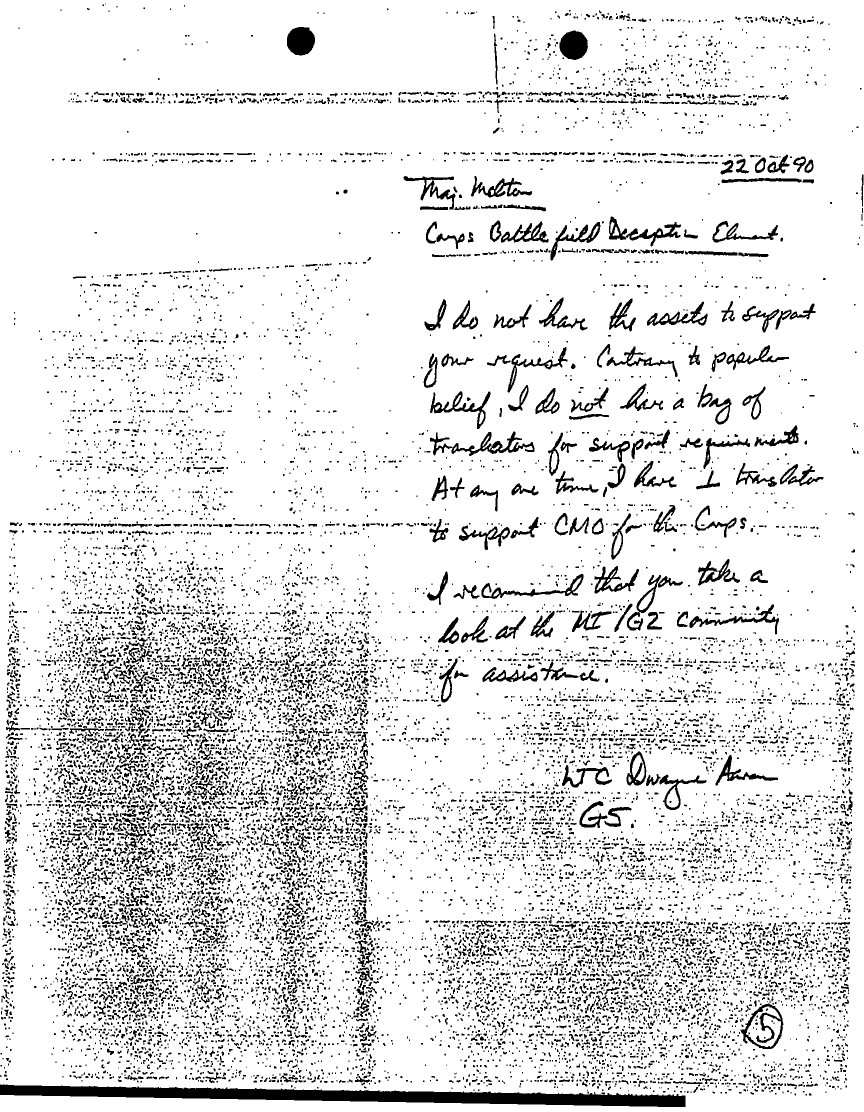 22 Oct 90
Maj. Melton
Corps Battlefield Deception Element.
I do not have the assets to support
your request. Contrary to popular
belief, I do not have a bag of
translators for support requirements.
At any one time, I have 1 translator
to support CMO for the Corps.
I recommend that you take a
look at the MI/G2 community
for assistance.
LTC Dwayne Aaron
G5.
5